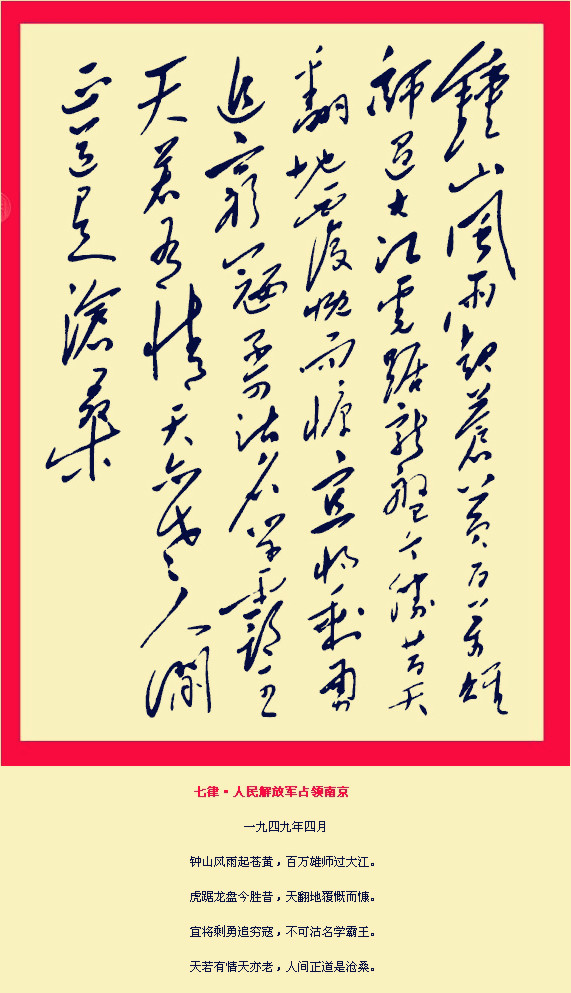 鍾山風雨起蒼黄百万雄
師過大江虎踞龍盤今勝昔天
翻地覆慨而慷宜将剩勇
追窮寇不可沽名学霸王
天若有情天亦老人澗
正道是滄桑
七律▪人民解放军占领南京
一九四九年四月
钟山风雨起苍黄，百万雄师过大江。
虎踞龙盘今胜昔，天翻地覆慨而慷。
宜将剩勇追穷寇，不可沽名学霸王。
天若有情天亦老，人间正道是沧桑。